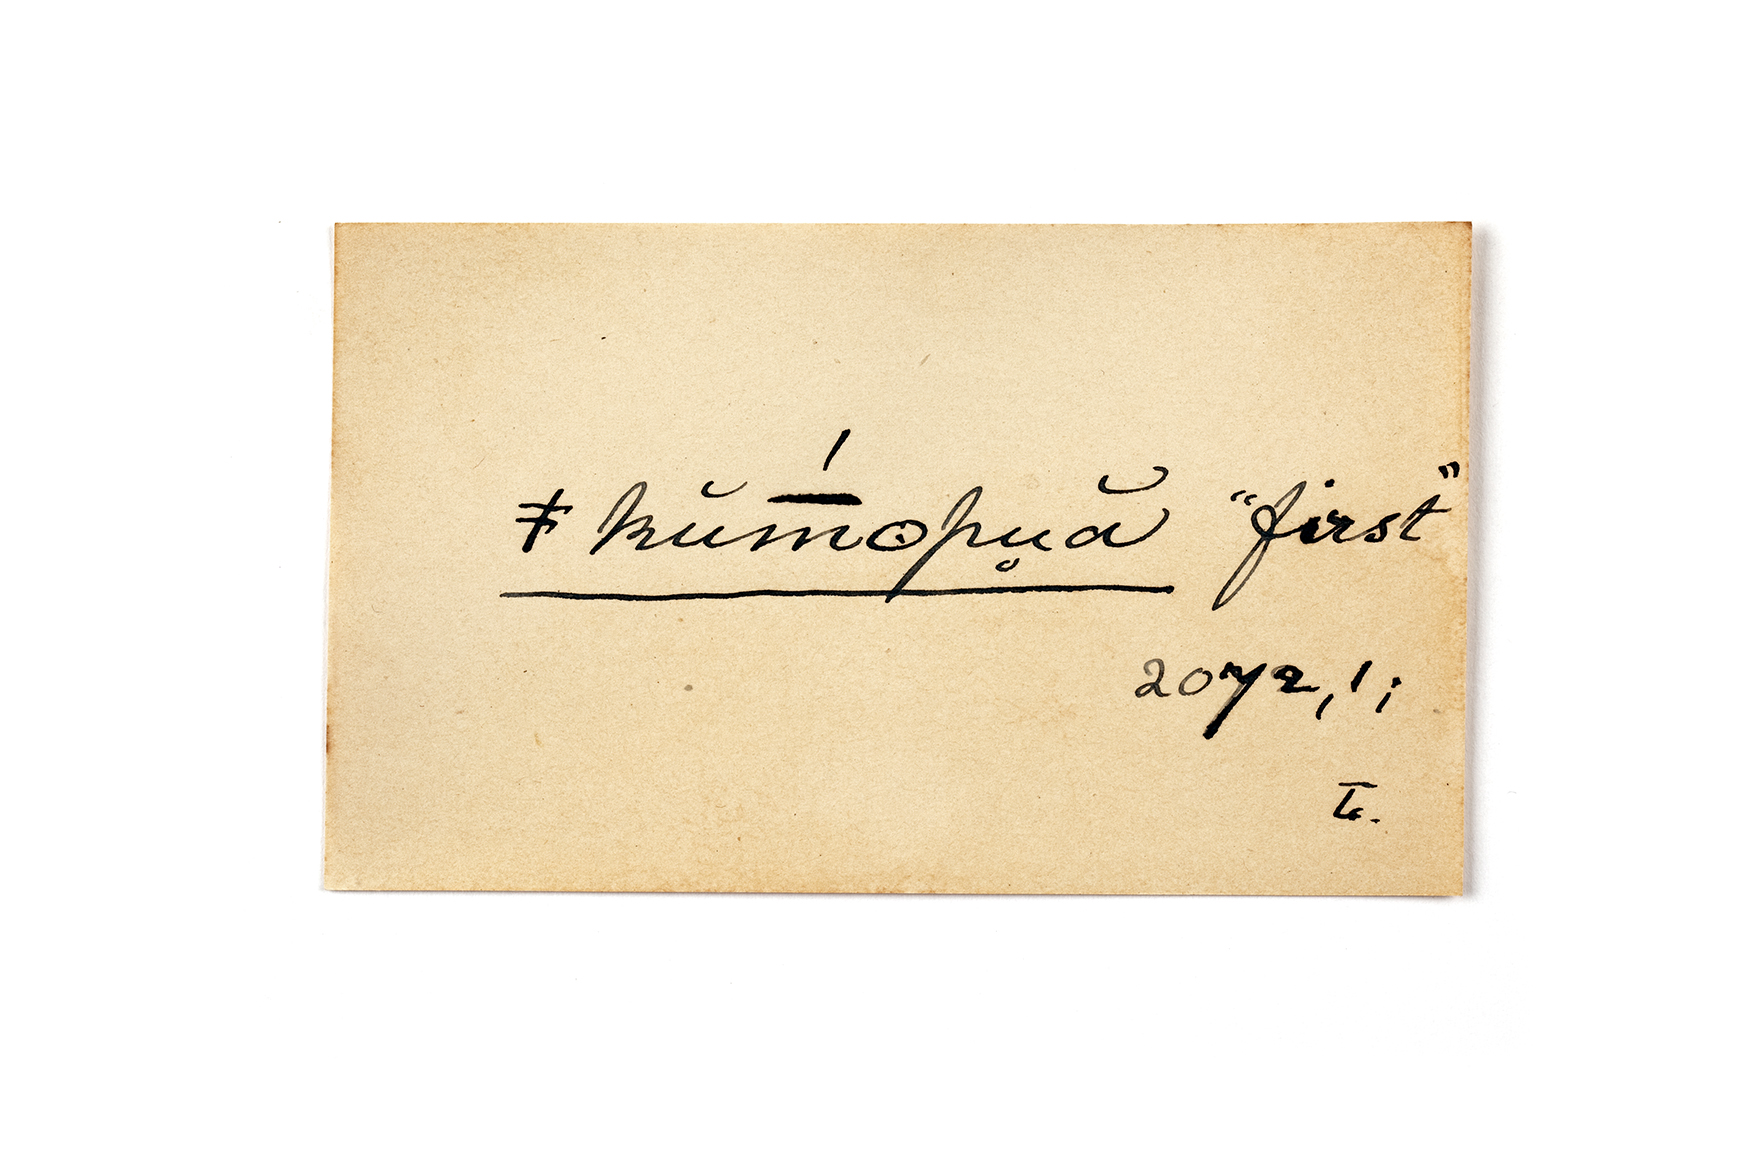 ‡ kŭm̄́opu̥ă "first"
2072, 1;